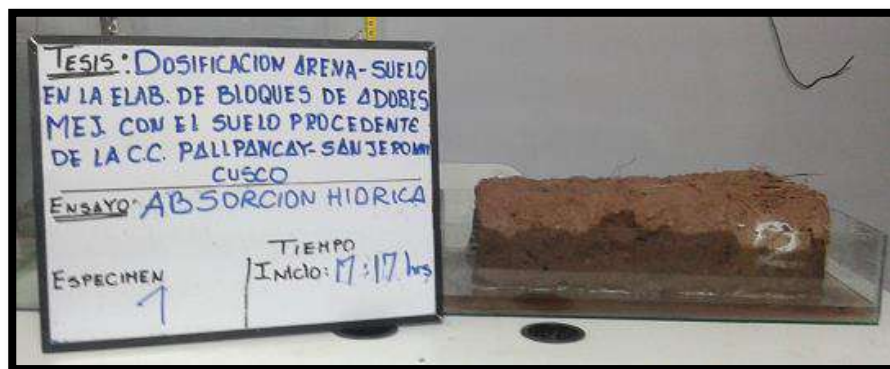 TESIS: DOSIFICACION ARENA-SUELO
EN LA ELAB. DE BLOQUES DE ADOBES
MEJ. CON EL SUELO PROCEDENTE
DE LA C.C. PALLPANCAY-SAN JERONIMO
CUSCO
ENSAYO: ABSORCION HIDRICA
TIEMPO
ESPECIMEN
INICIO: 17:17 hrs
1